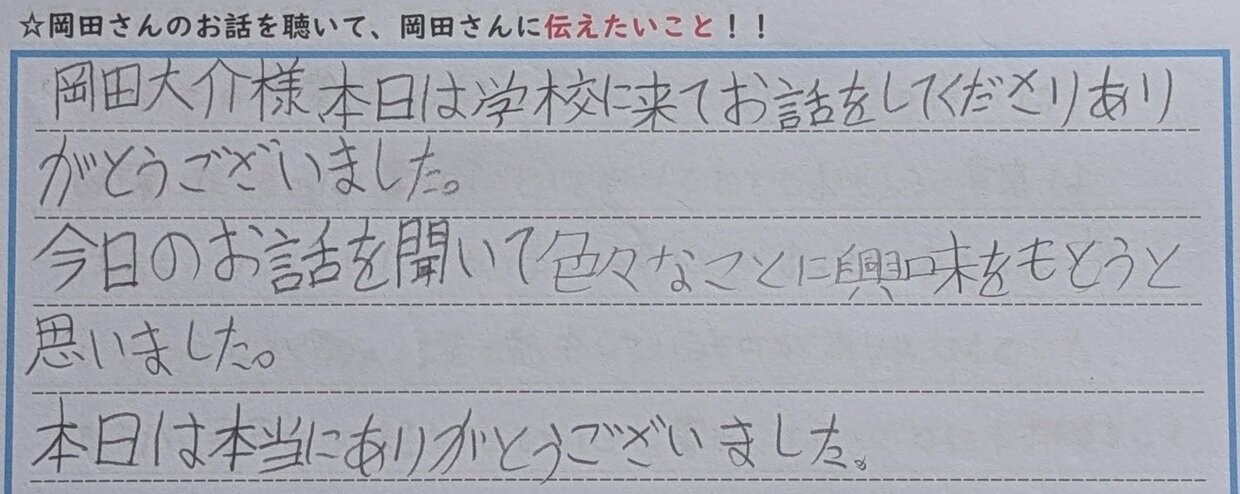 ☆岡田さんのお話を聴いて、岡田さんに伝えたいこと！！
岡田大介様本日は学校に来てお話をしてくださりあり
がとうございました。
今日のお話を聞いて色々なことに興味をもとうと
思いました。
本日は本当にありがとうございました。